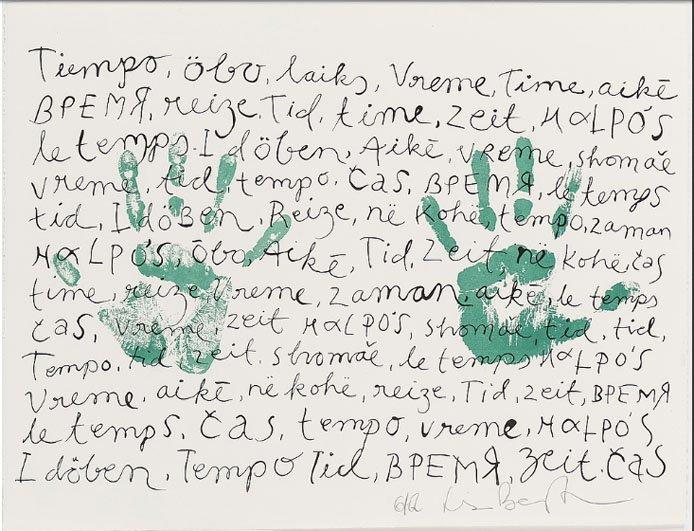 Tiempo, öbo, laiks, Vreme, Time, aikē
ВРЕМЯ, reize, Tid, time, Zeit, καιρós
le temps. I döben, Aikē, vreme, shomaě
vreme, tid, tempo. Čas, ВРЕМЯ, le temps
tid, I döBen, Reize, në Kohë, tempo, zaman
καιρós, öbo, Aikē, Tid, Zeit, në kohë, čas
time, reize, vreme, zaman, aikē, le temps
čas, vreme, zeit καιρós, shomaě, tid, tid,
Tempo, tid, zeit. shomaě, le temps, καιρós
vreme, aikē, në kohë, reize, Tid, zeit, ВРЕМЯ
le temps. Čas, tempo, vreme, καιρós
I döben, Tempo Tid, ВРЕМЯ, zeit. Čas